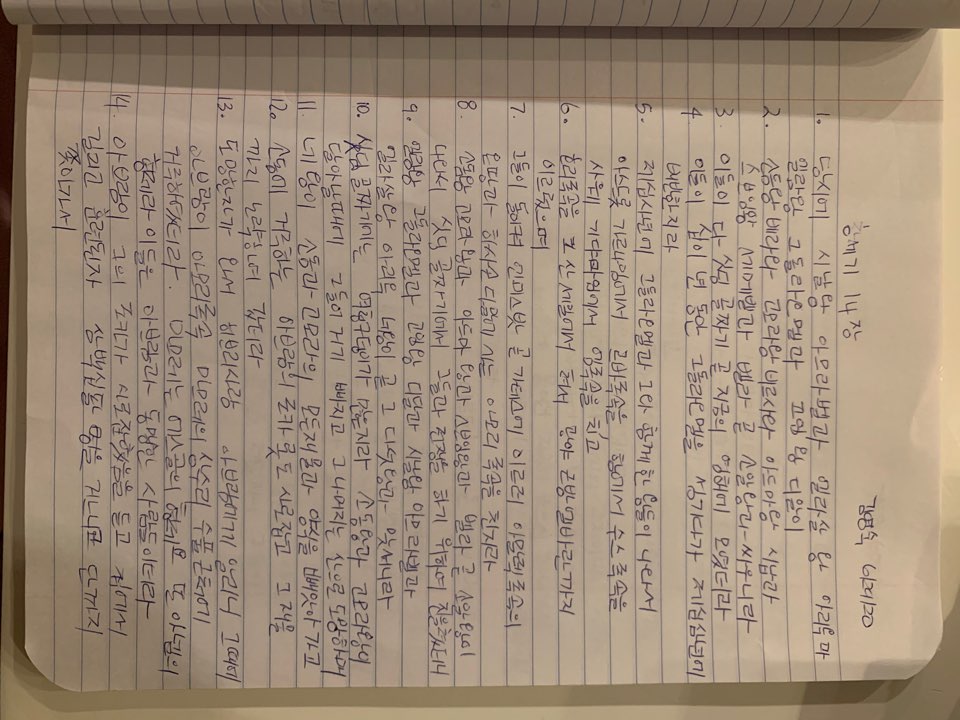 창세기 14장
1. 당시에 시날왕 아므라벨과 엘라살 왕 아리옥과
엘람왕 그돌라오멜과 고임왕 디달이
2. 소돔왕 베라와 고모라왕 비르사와 아드마왕 시납과
스보임왕 세메벨과 벨라 곧 소알왕과 싸우니라
3. 이들이 다 싯딤 골짜기 곧 지금의 염해에 모였더라
4. 이들이 십이년 동안 그돌라오멜을 섬기다가 제십삼년에
배반한지라
5. 제십사년에 그돌라오멜과 그와 함께한 왕들이 나와서
아스드롯 가르나임에서 르바족속을 함에서 수스 족속을
사웨 기랴다임에서 엠족속을 치고
6. 호리족속을 그 산 세일에서 쳐서 광야 근방 엘바란까지
이르렀으며
7. 그들이 돌이켜 엔미스밧 곧 가데스에 이르러 아말렉족속의
온땅과 하사손다말에 사는 아모리 족속을 친지라
8. 소돔왕과 고모라왕과 아드마왕과 스보임왕과 벨라 곧 소알왕이
나와서 싯딤 골짜기에서 그들과 전쟁을 하기 위하여 진을쳤더니
9. 엘람왕 그돌라오멜과 고임왕 디달과 시날왕 아므라벨과
엘라살왕 아리옥 네왕이 곧 그 다섯왕과 맞서니라
10. 싯딤 골짜기에는 역청구덩이가 많은지라 소돔왕과 고모라왕이
달아날때에 그들이 거기 빠지고 그 나머지는 산으로 도망하매
11. 네왕이 소돔과 고모라의 모든재물과 양식을 빼앗아 가고
12. 소돔에 거주하는 아브람의 조카 롯도 사로잡고 그 재물
까지 노략하여 갔더라
13. 도망한자가 와서 히브리사람 아브람에게 알리니 그때에
아브람이 아모리족속 마므레의 상수리 수풀 근처에
거주하였더라. 마므레는 에스골의 형제요 또 아넬의
형제라 이들은 아브람과 동맹한 사람들이더라
14. 아브람이 그의 조카가 사로잡혔음을 듣고 집에서
길리고 훈련된자 삼백십팔 명을 거느리고 단까지
쫓아가서